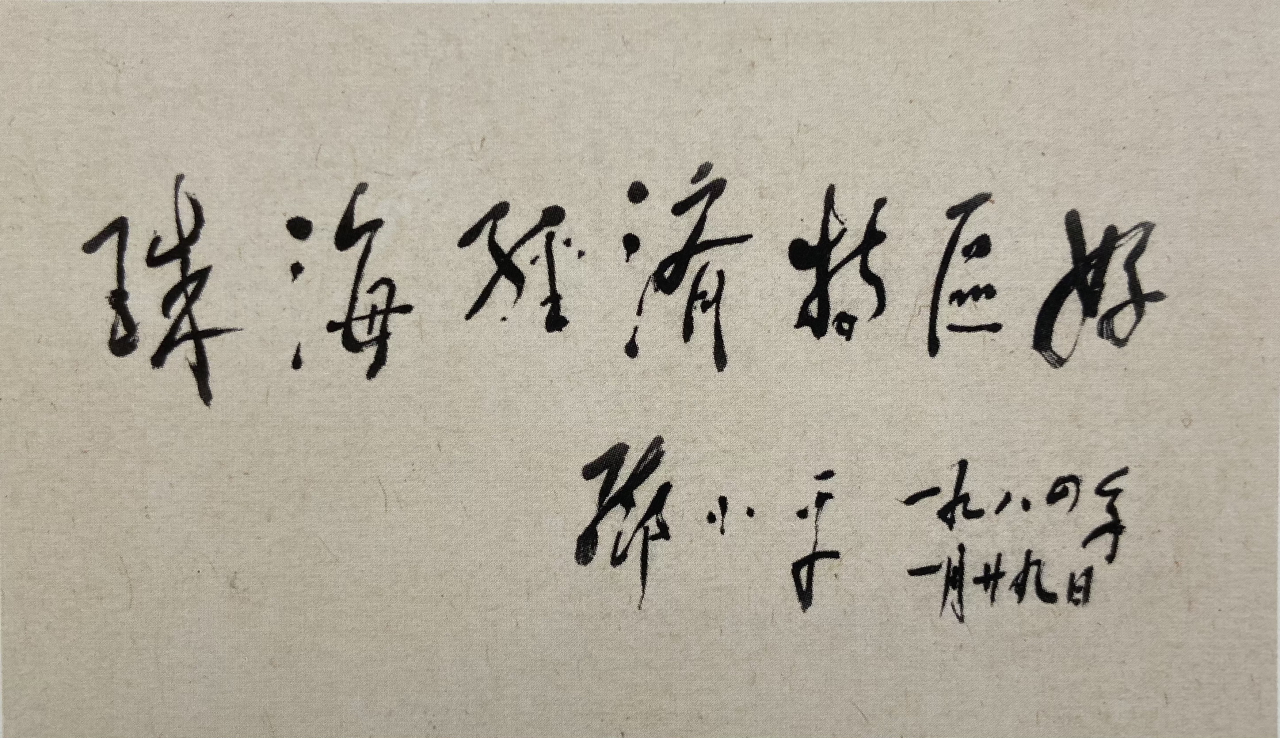 珠海经济特區好
鄧小平 一九八四年
一月廿九日